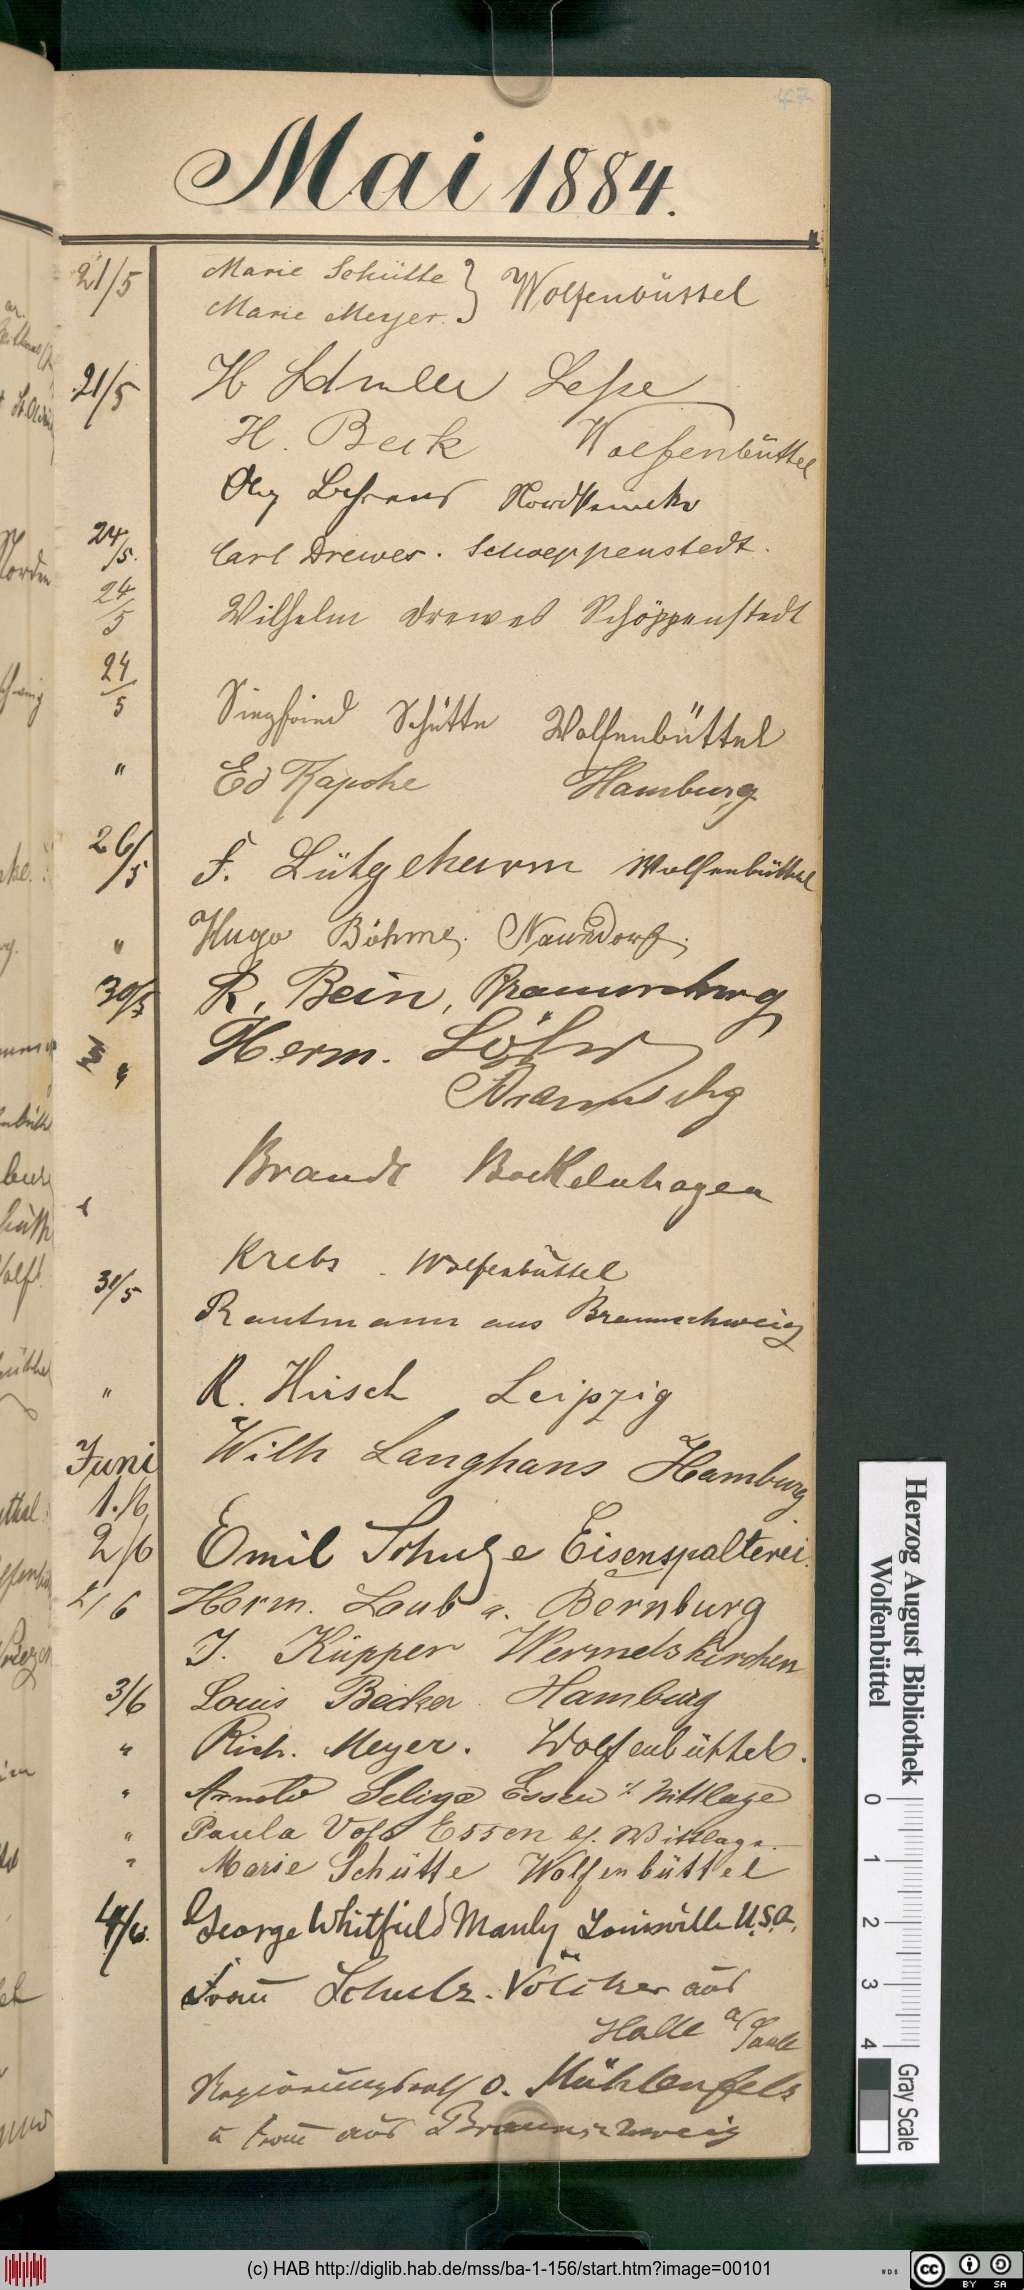 47
Mai 1884.
21/5 Marie Schütte } Wolfenbüttel
Marie Meyer.
21/5 H
H. Beck Wolfenbüttel
Behrens
24/5. Carl Drewes. Schoeppenstedt.
24/5 Wilhelm Drewes Schöppenstedt
24/5 Siegfried Schütte Wolfenbüttel
" Ed Hamburg
26/5 F. Lütgeharm Wolfenbüttel
" Hugo Böhme, Naundorf.
30/5 R. Bein, Braunschwg
" Herm. Löhr
Braunschg
Brandt Bockelnhagen
Krebs. Wolfenbüttel
30/5 Rautmann aus Braunschweig
" R. Hirsch Leipzig
Juni Wilh Langhans Hamburg
1./6
2/6 Emil Schulze Eisenspalterei.
2/6 Herm. Laub a. Bernburg
J. Küpper Wermelskirchen
3/6 Louis Becker Hamburg
" Rich. Meyer. Wolfenbüttel.
" Arnold Essen Wittlage
" Paula Essen bf. Wittlage.
" Marie Schütte Wolfenbüttel
4/6. George Whitfield Manly Louisville U.S.A.
Frau Schulz-Völcker aus
Halle a/Saale
Regierungsrath v. Mühlenfels
u Frau aus Braunschweig
Herzog August Bibliothek
Wolfenbüttel
0 1 2 3 4
Gray Scale
(c) HAB http://diglib.hab.de/mss/ba-1-156/start.htm?image=00101
WDB
cc BY SA